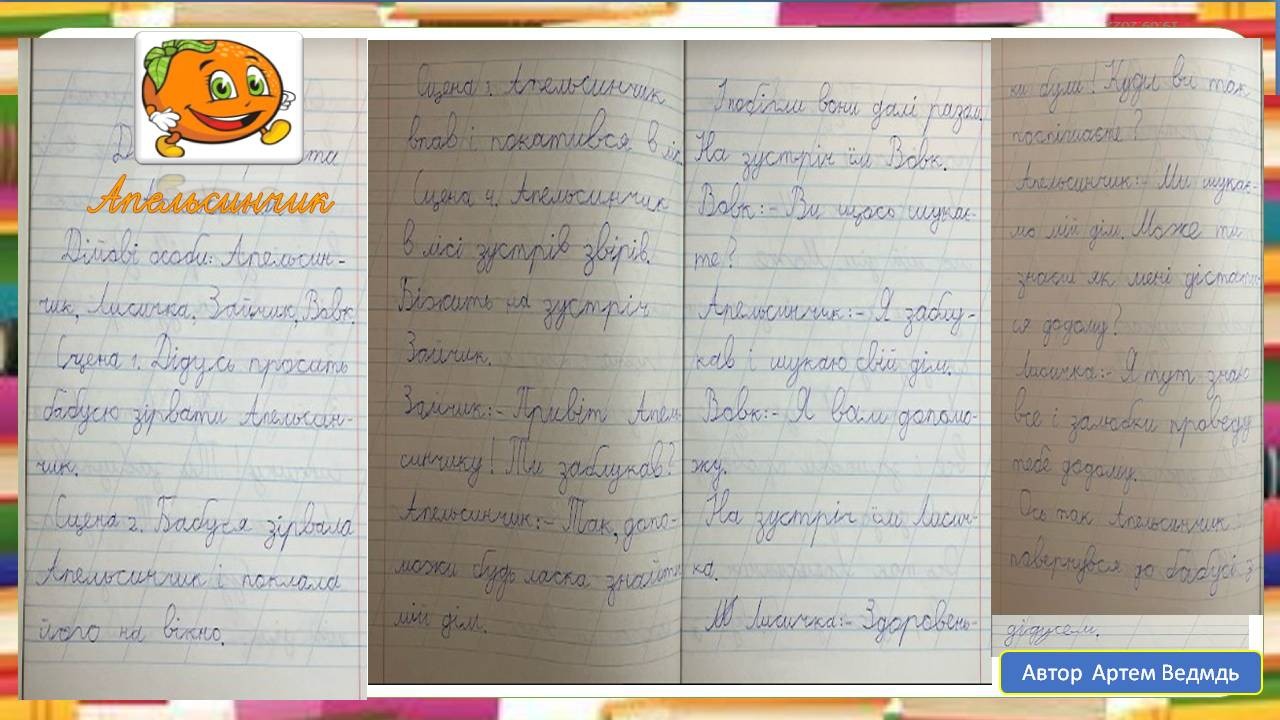 Апельсинчик
Дійові особи: Апельсин-
чик, Лисичка, Зайчик, Вовк.
Сцена 1. Дідусь просить
бабусю зірвати Апельсин-
чик.
Сцена 2. Бабуся зірвала
Апельсинчик і поклала
його на вікно.
Сцена 3. Апельсинчик
впав і покатився в ліс
Сцена 4. Апельсинчик
в лісі зустрів звірів.
Біжить на зустріч
Зайчик.
Зайчик:- Привіт Апель
синчику! Ти заблукав?
Апельсинчик:- Так, допо-
можи будь ласка знайти
мій дім.
І побігли вони далі разом.
На зустріч їм Вовк.
Вовк:- Ви щось шукає-
те?
Апельсинчик:- Я заблу-
кав і шукаю свій дім.
Вовк:- Я вам допомо-
жу.
На зустріч їм Лисич-
ка.
Лисичка:- Здоровень-
ки були! Куди ви так
поспішаєте?
Апельсинчик:- Ми шукає-
мо мій дім. Може ти
знаєш як мені дістати-
ся додому?
Лисичка:- Я тут знаю
все і залюбки проведу
тебе додому.
Ось так Апельсинчик
повернувся до бабусі з
дідусем.
Автор Артем Ведмдь